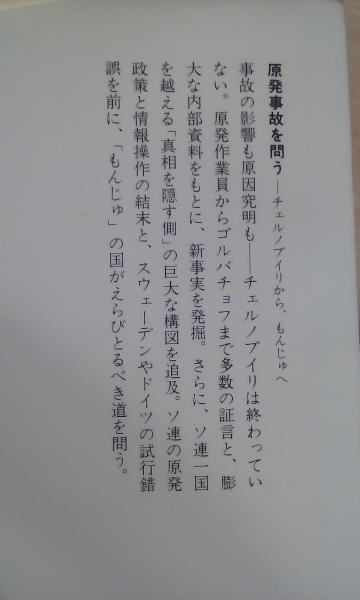 原発事故を問う―チェルノブイリから、もんじゅへ
事故の影響も原因究明も――チェルノブイリは終わってい
ない。原発作業員からゴルバチョフまで多数の証言と、膨
大な内部資料をもとに、新事実を発掘。さらに、ソ連一国
を越える「真相を隠す側」の巨大な構図を追及。ソ連の原発
政策と情報操作の結末と、スウェーデンやドイツの試行錯
誤を前に、「もんじゅ」の国がえらびとるべき道を問う。